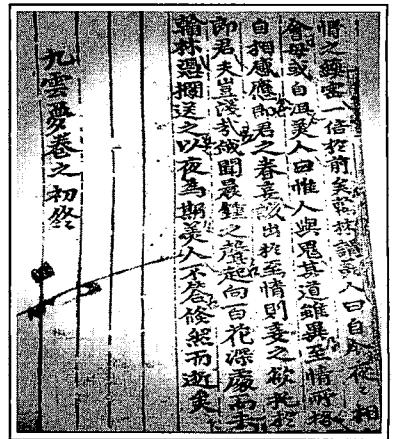 情之繾綣一倍於前矣翰林謂美人曰自今夜夜相
會毋或自沮美人曰惟人與鬼其道雖異至情所格
自相感應郎君之眷妾誠出於至情則妾之欲托於
郎君夫豈淺哉俄聞晨鍾之聲起向百花深處而去
翰林憑欄送之以夜爲期美人不答倏然而逝矣
九雲夢卷之初終